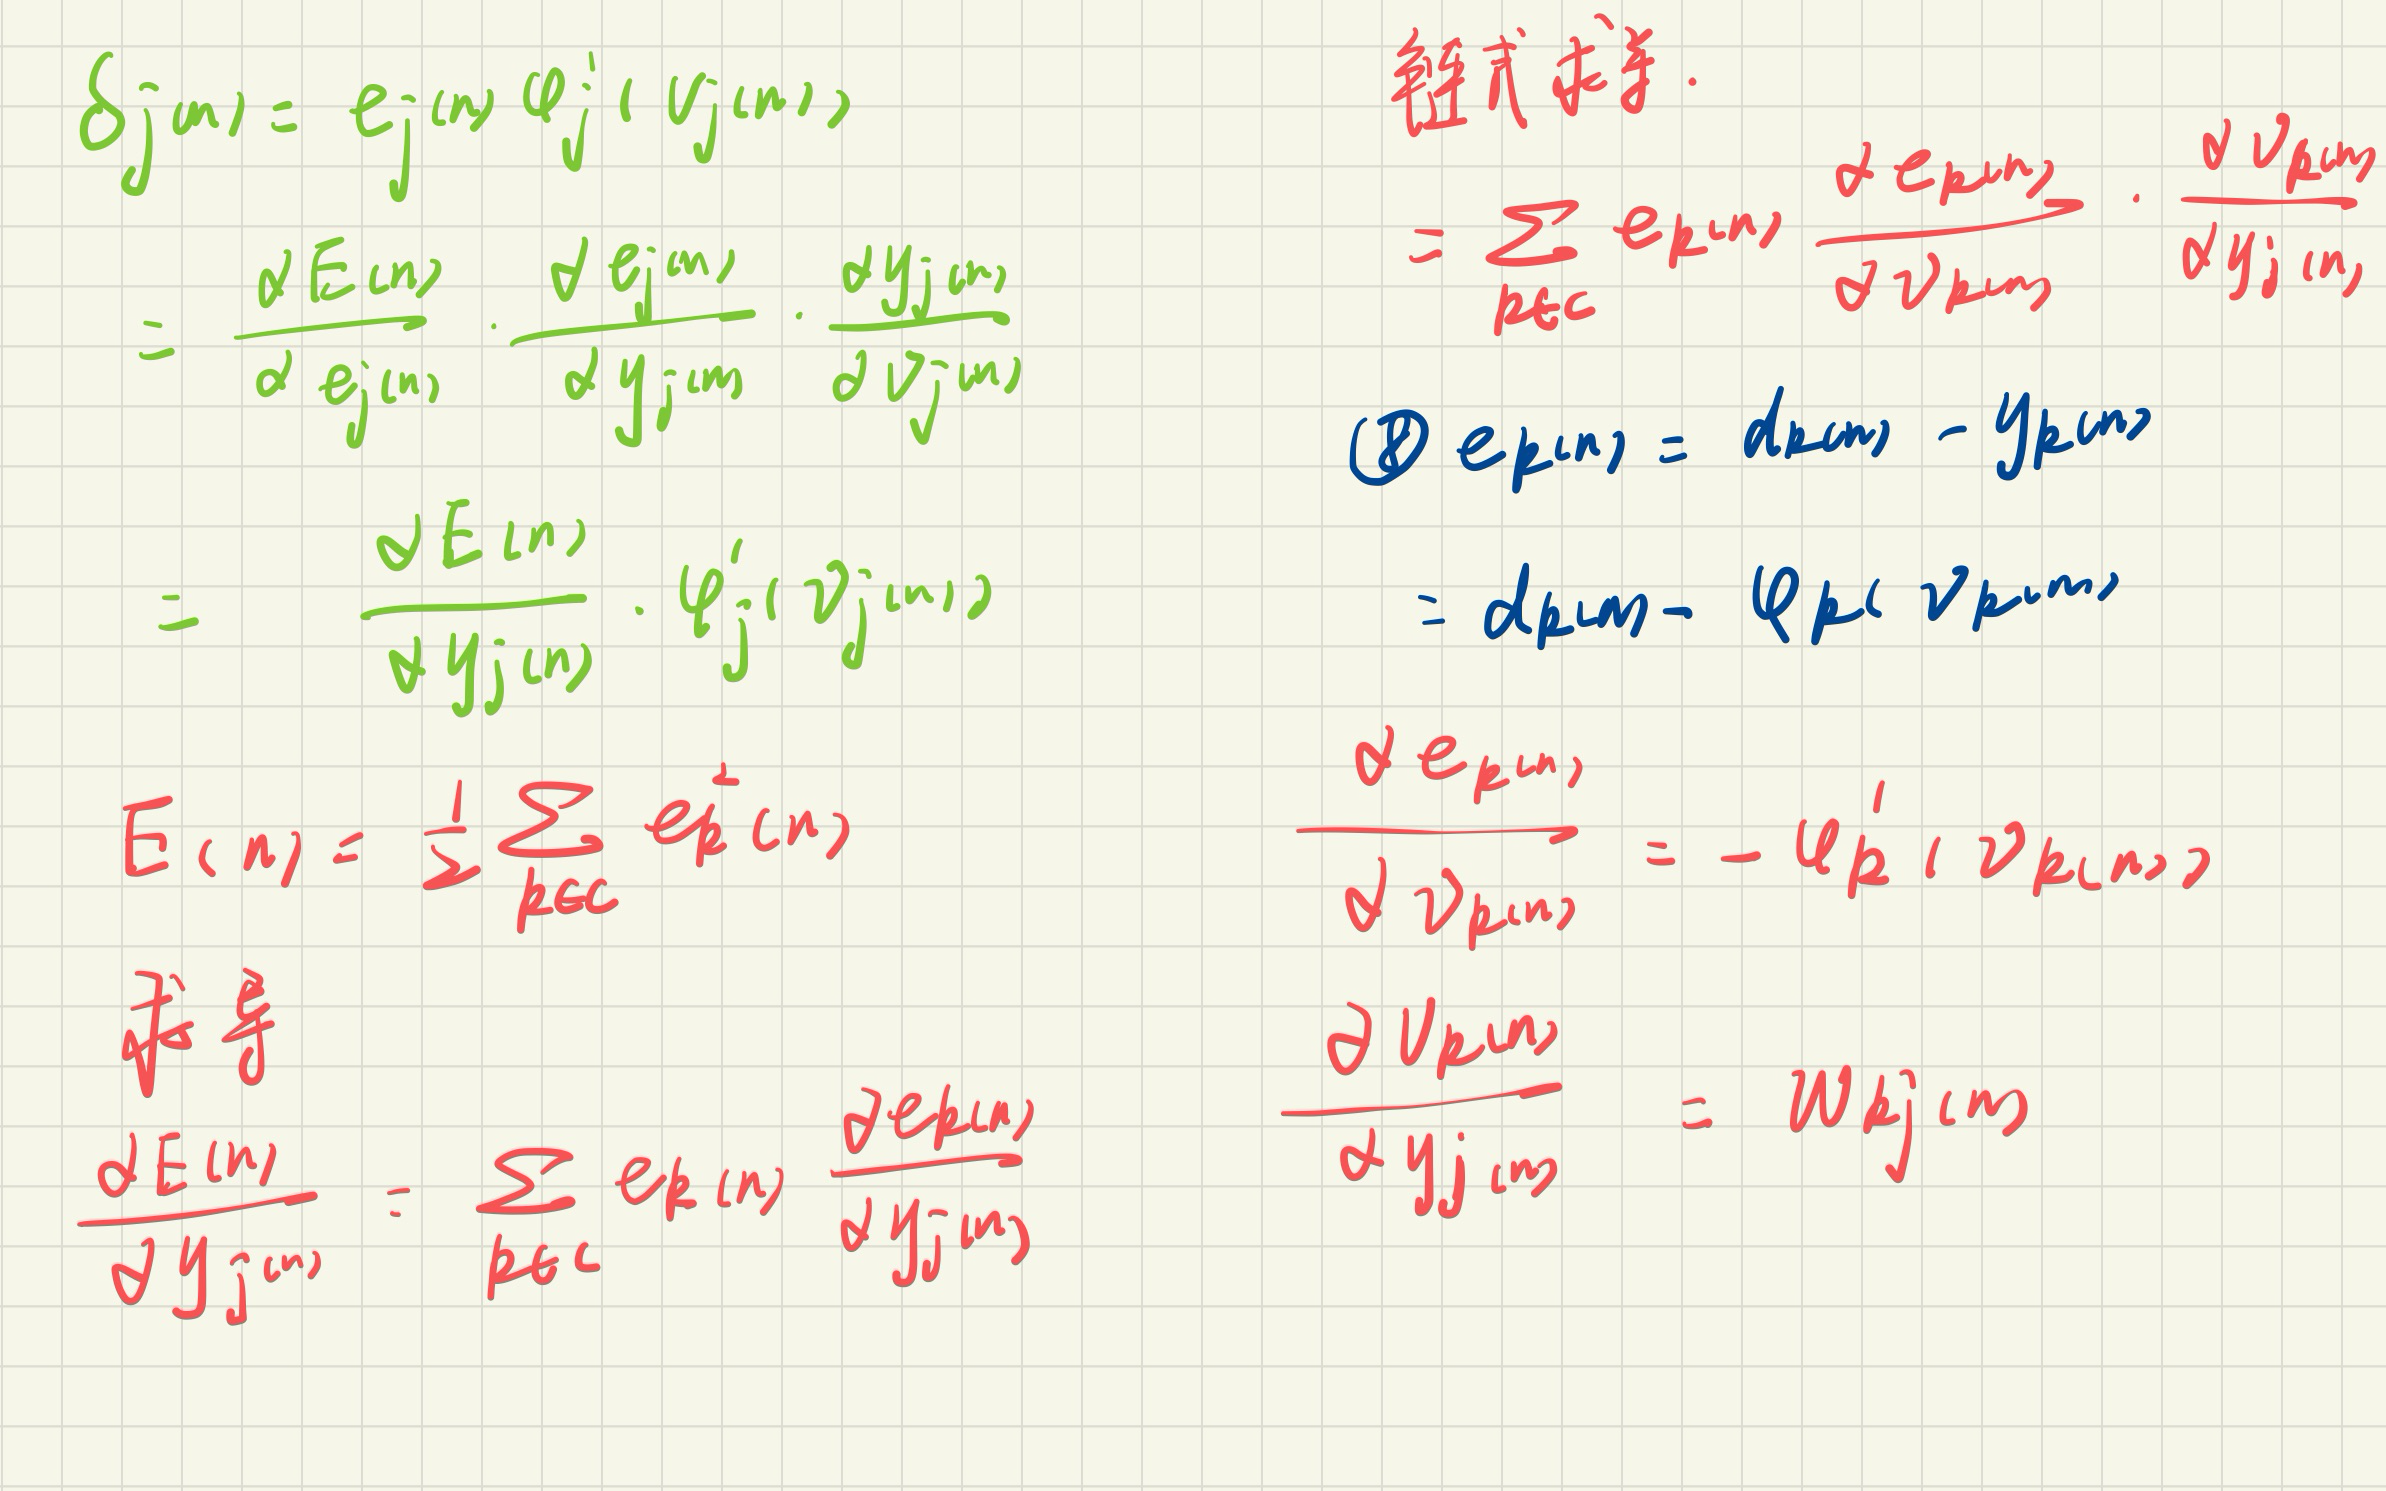 δj(n) = ej(n) φj'(vj(n))
= ∂E(n)/∂ej(n) · ∂ej(n)/∂yj(n) · ∂yj(n)/∂vj(n)
= ∂E(n)/∂yj(n) · φj'(vj(n))
E(n) = 1/2 Σ k∈C ek²(n)
求导
∂E(n)/∂yj(n) = Σ k∈C ek(n) ∂ek(n)/∂yj(n)
链式求导.
= Σ k∈C ek(n) ∂ek(n)/∂vk(n) · ∂vk(n)/∂yj(n)
ek(n) = dk(n) - yk(n)
= dk(n) - φk(vk(n)
∂ek(n)/∂vk(n) = -φk'(vk(n))
∂vk(n)/∂yj(n) = Wkj(n)